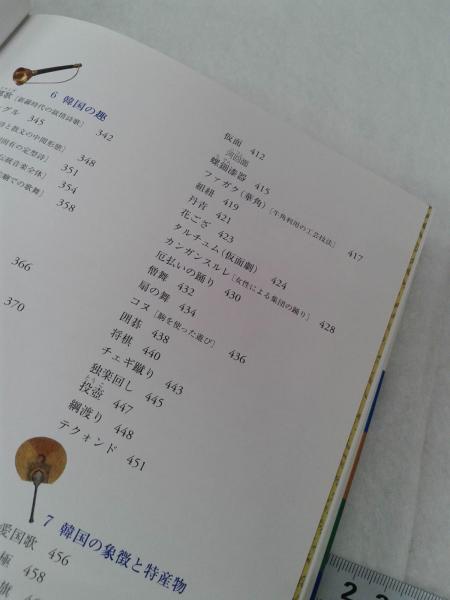 6 韓国の趣
歌[新羅時代の叙情詩歌] 342
グル 345
詩と散文の中間形態] 348
固有の定型詩] 351
354
での歌舞] 358
366
370
仮面 412
螺鈿漆器 415
ファガク(華角)[牛角利用の工芸技法] 417
組紐 419
丹青 421
花ござ 423
タルチュム(仮面劇) 424
カンガンスルレ[女性による集団の踊り] 428
厄払いの踊り 430
僧舞 432
扇の舞 434
コヌ[駒を使った遊び] 436
囲碁 438
将棋 440
チェギ蹴り 443
独楽回し 445
投壺 447
綱渡り 448
テクォンド 451
7 韓国の象徴と特産物
愛国歌 456
極 458
旗
2